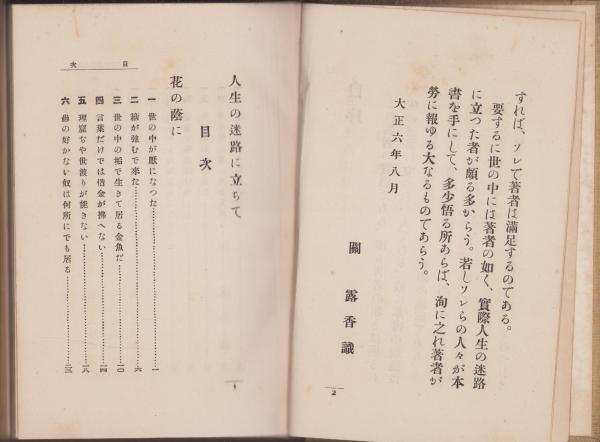 すれば、ソレで著者は滿足するのである。
要するに世の中には著者の如く、實際人生の迷路
に立つた者が頗る多からう。若しソレらの人々が本
書を手にして、多少悟る所あらば、洵に之れ著者が
勞に報ゆる大なるものであらう。
大正六年八月
關露香識
2
人生の迷路に立ちて
目次
花の蔭に
一 世の中が厭になつた……一
二 籔が強むで來た……六
三 世の中の垢で生きて居る金魚だ……一〇
四 言葉だけでは借金が拂へない……一四
五 理窟ぢや世渡りが能きない……一八
六 蟲の好かない奴は何所にでも居る……二三
目次
1